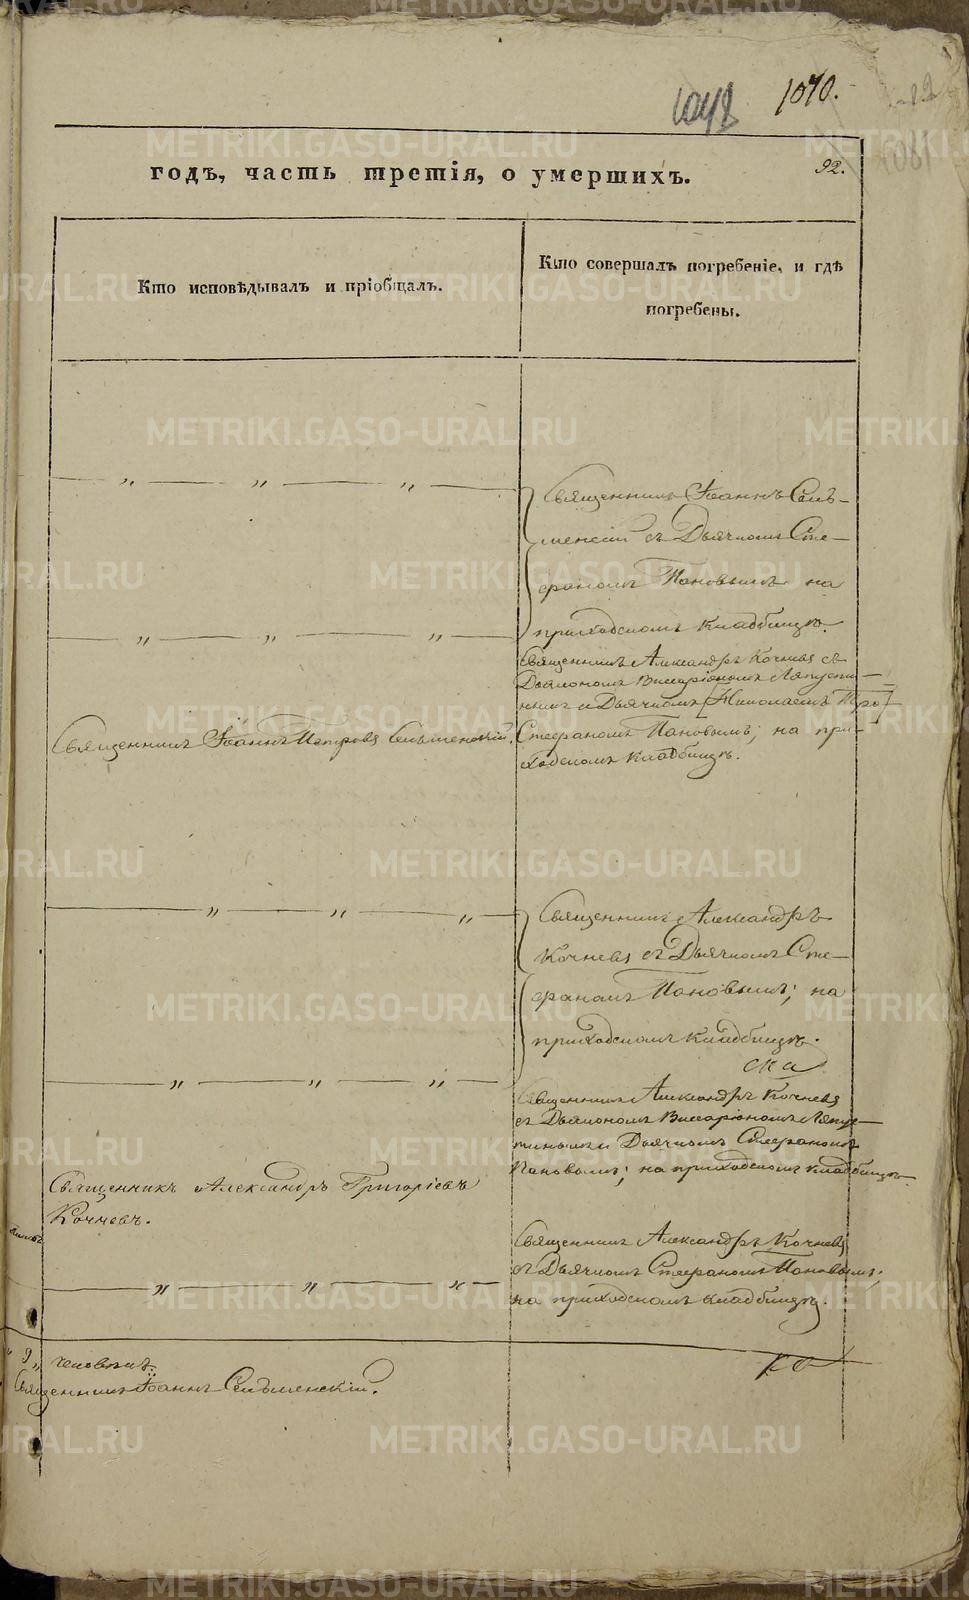 1070.
1048
92.
годъ, часть третія, о умершихъ.
Кто исповѣдывалъ и пріобщалъ.
Кто совершалъ погребеніе, и гдѣ
погребены.
Священникъ Іоаннъ Сель-
менскій съ Дьячкомъ Сте-
фаномъ Пановымъ на
приходскомъ кладбищѣ.
Священникъ Александръ Кочневъ съ
Дьякономъ Виссаріономъ Ляпусти-
нымъ и Дьячкомъ [Николаемъ Про]
Священникъ Іоаннъ Петровъ Сельменскій.
Стефаномъ Пановымъ; на при-
ходскомъ кладбищѣ.
Священникъ Александръ
Кочневъ съ Дьячкомъ Сте-
фаномъ Пановымъ; на
приходскомъ кладбищѣ.
Священникъ Александръ Кочневъ
съ Дьякономъ Виссаріономъ Ляпус-
тинымъ и Дьячкомъ Стефаномъ
Пановымъ; на приходскомъ кладбищѣ.
Священникъ Александръ Григоріевъ
Кочневъ.
Священникъ Александръ Кочневъ
съ Дьячкомъ Стефаномъ Пановымъ;
на приходскомъ кладбищѣ.
9 человѣкъ.
Священникъ Іоаннъ Сельменскій.
METRIKI.GASO-URAL.RU